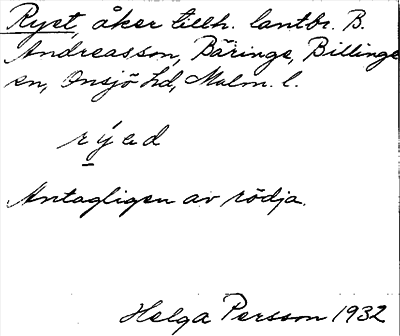 Ryet, åker tillh. lantbr. B.
Andreasson, Bäringe, Billinge
sn, Onsjö hd, Malm. l.
rýəd
Antagligen av rödja.
Helga Persson 1932